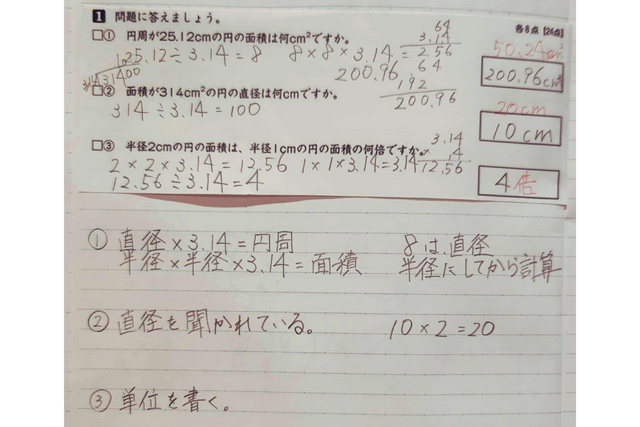 1 問題に答えましょう。 各8点【24点】
□① 円周が25.12cmの円の面積は何cm²ですか。
25.12÷3.14=8 8×8×3.14=200.96
64
3.14
256
64
192
200.96
50.24cm²
200.96cm²
□② 面積が314cm²の円の直径は何cmですか。
314÷3.14=100
20cm
10cm
□③ 半径2cmの円の面積は、半径1cmの円の面積の何倍ですか。
2×2×3.14=12.56 1×1×3.14=3.14
12.56÷3.14=4
3.14
4
12.56
4倍
① 直径×3.14=円周 8は、直径
半径×半径×3.14=面積 半径にしてから計算
② 直径を聞かれている。 10×2=20
③ 単位を書く。